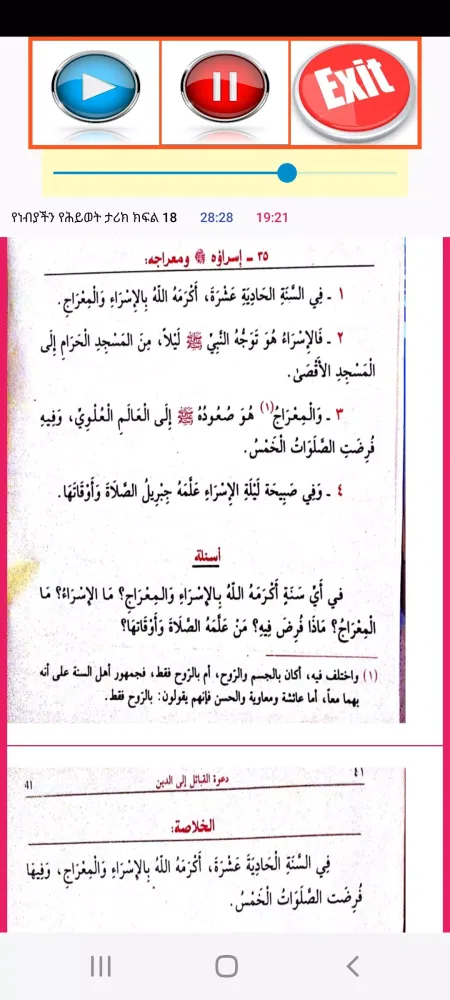 Exit
የነብያችን የሕይወት ታሪክ ክፍል 18 28:28 19:21
٣٥ - إسراؤه ﷺ ومعراجه:
١ - فِي السَّنَةِ الحَادِيَةِ عَشْرَةَ، أَكْرَمَهُ اللَّهُ بِالإِسْرَاءِ وَالْمِعْرَاجِ.
٢ - فَالإِسْرَاءُ هُوَ تَوَجُّهُ النَّبِيِّ ﷺ لَيْلاً، مِنَ المَسْجِدِ الْحَرَامِ إِلَى
الْمَسْجِدِ الأَقْصَىٰ.
٣ - وَالْمِعْرَاجُ(١) هُوَ صُعُودُهُ ﷺ إِلَى الْعَالَمِ الْعُلْوِيِّ، وَفِيهِ
فُرِضَتِ الصَّلَوَاتُ الْخَمْسُ.
٤ - وَفِي صَبِيحَة لَيْلَةِ الإِسْرَاءِ عَلَّمَهُ جِبْرِيلُ الصَّلاَةَ وَأَوْقَاتَهَا.
أسئلة
في أَيِّ سَنَةٍ أَكْرَمَهُ اللَّهُ بِالإِسْرَاءِ وَالمِعْرَاجِ؟ مَا الإِسْرَاءُ؟ مَا
الْمِعْرَاجُ؟ مَاذَا فُرِضَ فِيهِ؟ مَنْ عَلَّمَهُ الصَّلاَةَ وَأَوْقَاتَهَا؟
(١) واختلف فيه، أكان بالجسم والرّوح، أم بالرّوح فقط، فجمهور أهل السنة على أنه
بهما معاً، أما عائشة ومعاوية والحسن فإنهم يقولون: بالرّوح فقط.
41 دعوة القبائل إلى الدين ٤١
الخلاصة:
فِي السَّنَةِ الْحَادِيَةَ عَشْرَةَ، أَكْرَمَهُ اللَّهُ بِالإِسْرَاءِ وَالْمِعْرَاجِ، وَفِيهَا
فُرِضَت الصَّلَوَاتُ الْخَمْسُ.